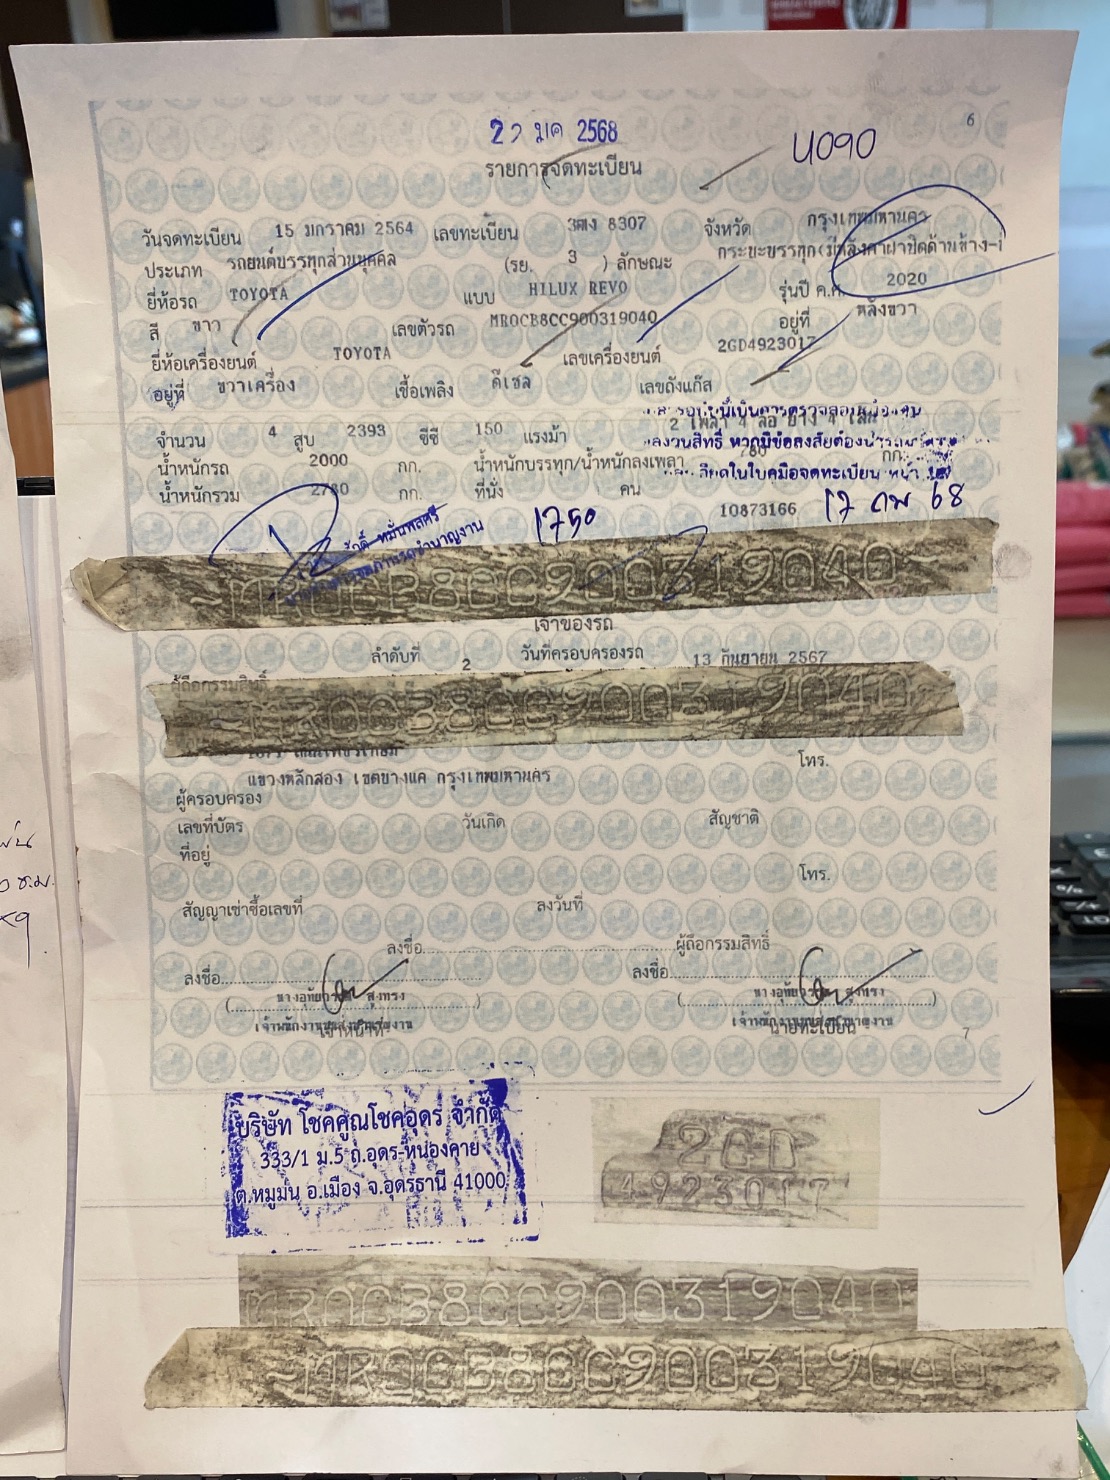 6
2 มค 2568
รายการจดทะเบียน
4090
วันจดทะเบียน 15 มกราคม 2564 เลขทะเบียน 3ฒง 8307 จังหวัด กรุงเทพมหานคร
ประเภท รถยนต์บรรทุกส่วนบุคคล (รย. 3 ) ลักษณะ กระบะบรรทุก(มีหลังคาฝาปิดด้านข้าง-
ยี่ห้อรถ TOYOTA แบบ HILUX REVO รุ่นปี ค.ศ. 2020
สี ขาว เลขตัวรถ MR0CB8CC900319040 อยู่ที่ หลังขวา
ยี่ห้อเครื่องยนต์ TOYOTA เลขเครื่องยนต์ 2GD4923017
อยู่ที่ ขวาเครื่อง เชื้อเพลิง ดีเซล เลขถังแก๊ส
จำนวน 4 สูบ 2393 ซีซี 150 แรงม้า 2 เพลา 4 ล้อ ยาง 4 เส้น
น้ำหนักรถ 2000 กก. น้ำหนักบรรทุก/น้ำหนักลงเพลา 780 กก.
น้ำหนักรวม 2780 กก. ที่นั่ง คน
สงวนสิทธิ์ หากมีข้อสงสัยต้อง
ในใบคู่มือจดทะเบียน หน้า
10873166
17 กพ 68
1750
MR0CB8CC900319040
เจ้าของรถ
ลำดับที่ 2 วันที่ครอบครองรถ 13 กันยายน 2567
ผู้ถือกรรมสิทธิ์
MR0CB8CC900319040
โทร.
แขวงหลักสอง เขตบางแค กรุงเทพมหานคร
ผู้ครอบครอง
เลขที่บัตร วันเกิด สัญชาติ
ที่อยู่
โทร.
สัญญาเช่าซื้อเลขที่ ลงวันที่
ลงชื่อ ผู้ถือกรรมสิทธิ์
ลงชื่อ ลงชื่อ
เจ้าหน้าที่ นายทะเบียน
7
บริษัท โชคศูณโชคอุดร จำกัด
333/1 ม.5 ถ.อุดร-หนองคาย
ต.หมูม่น อ.เมือง จ.อุดรธานี 41000
2GD
4923017
MR0CB8CC900319040
MR0CB8CC900319040